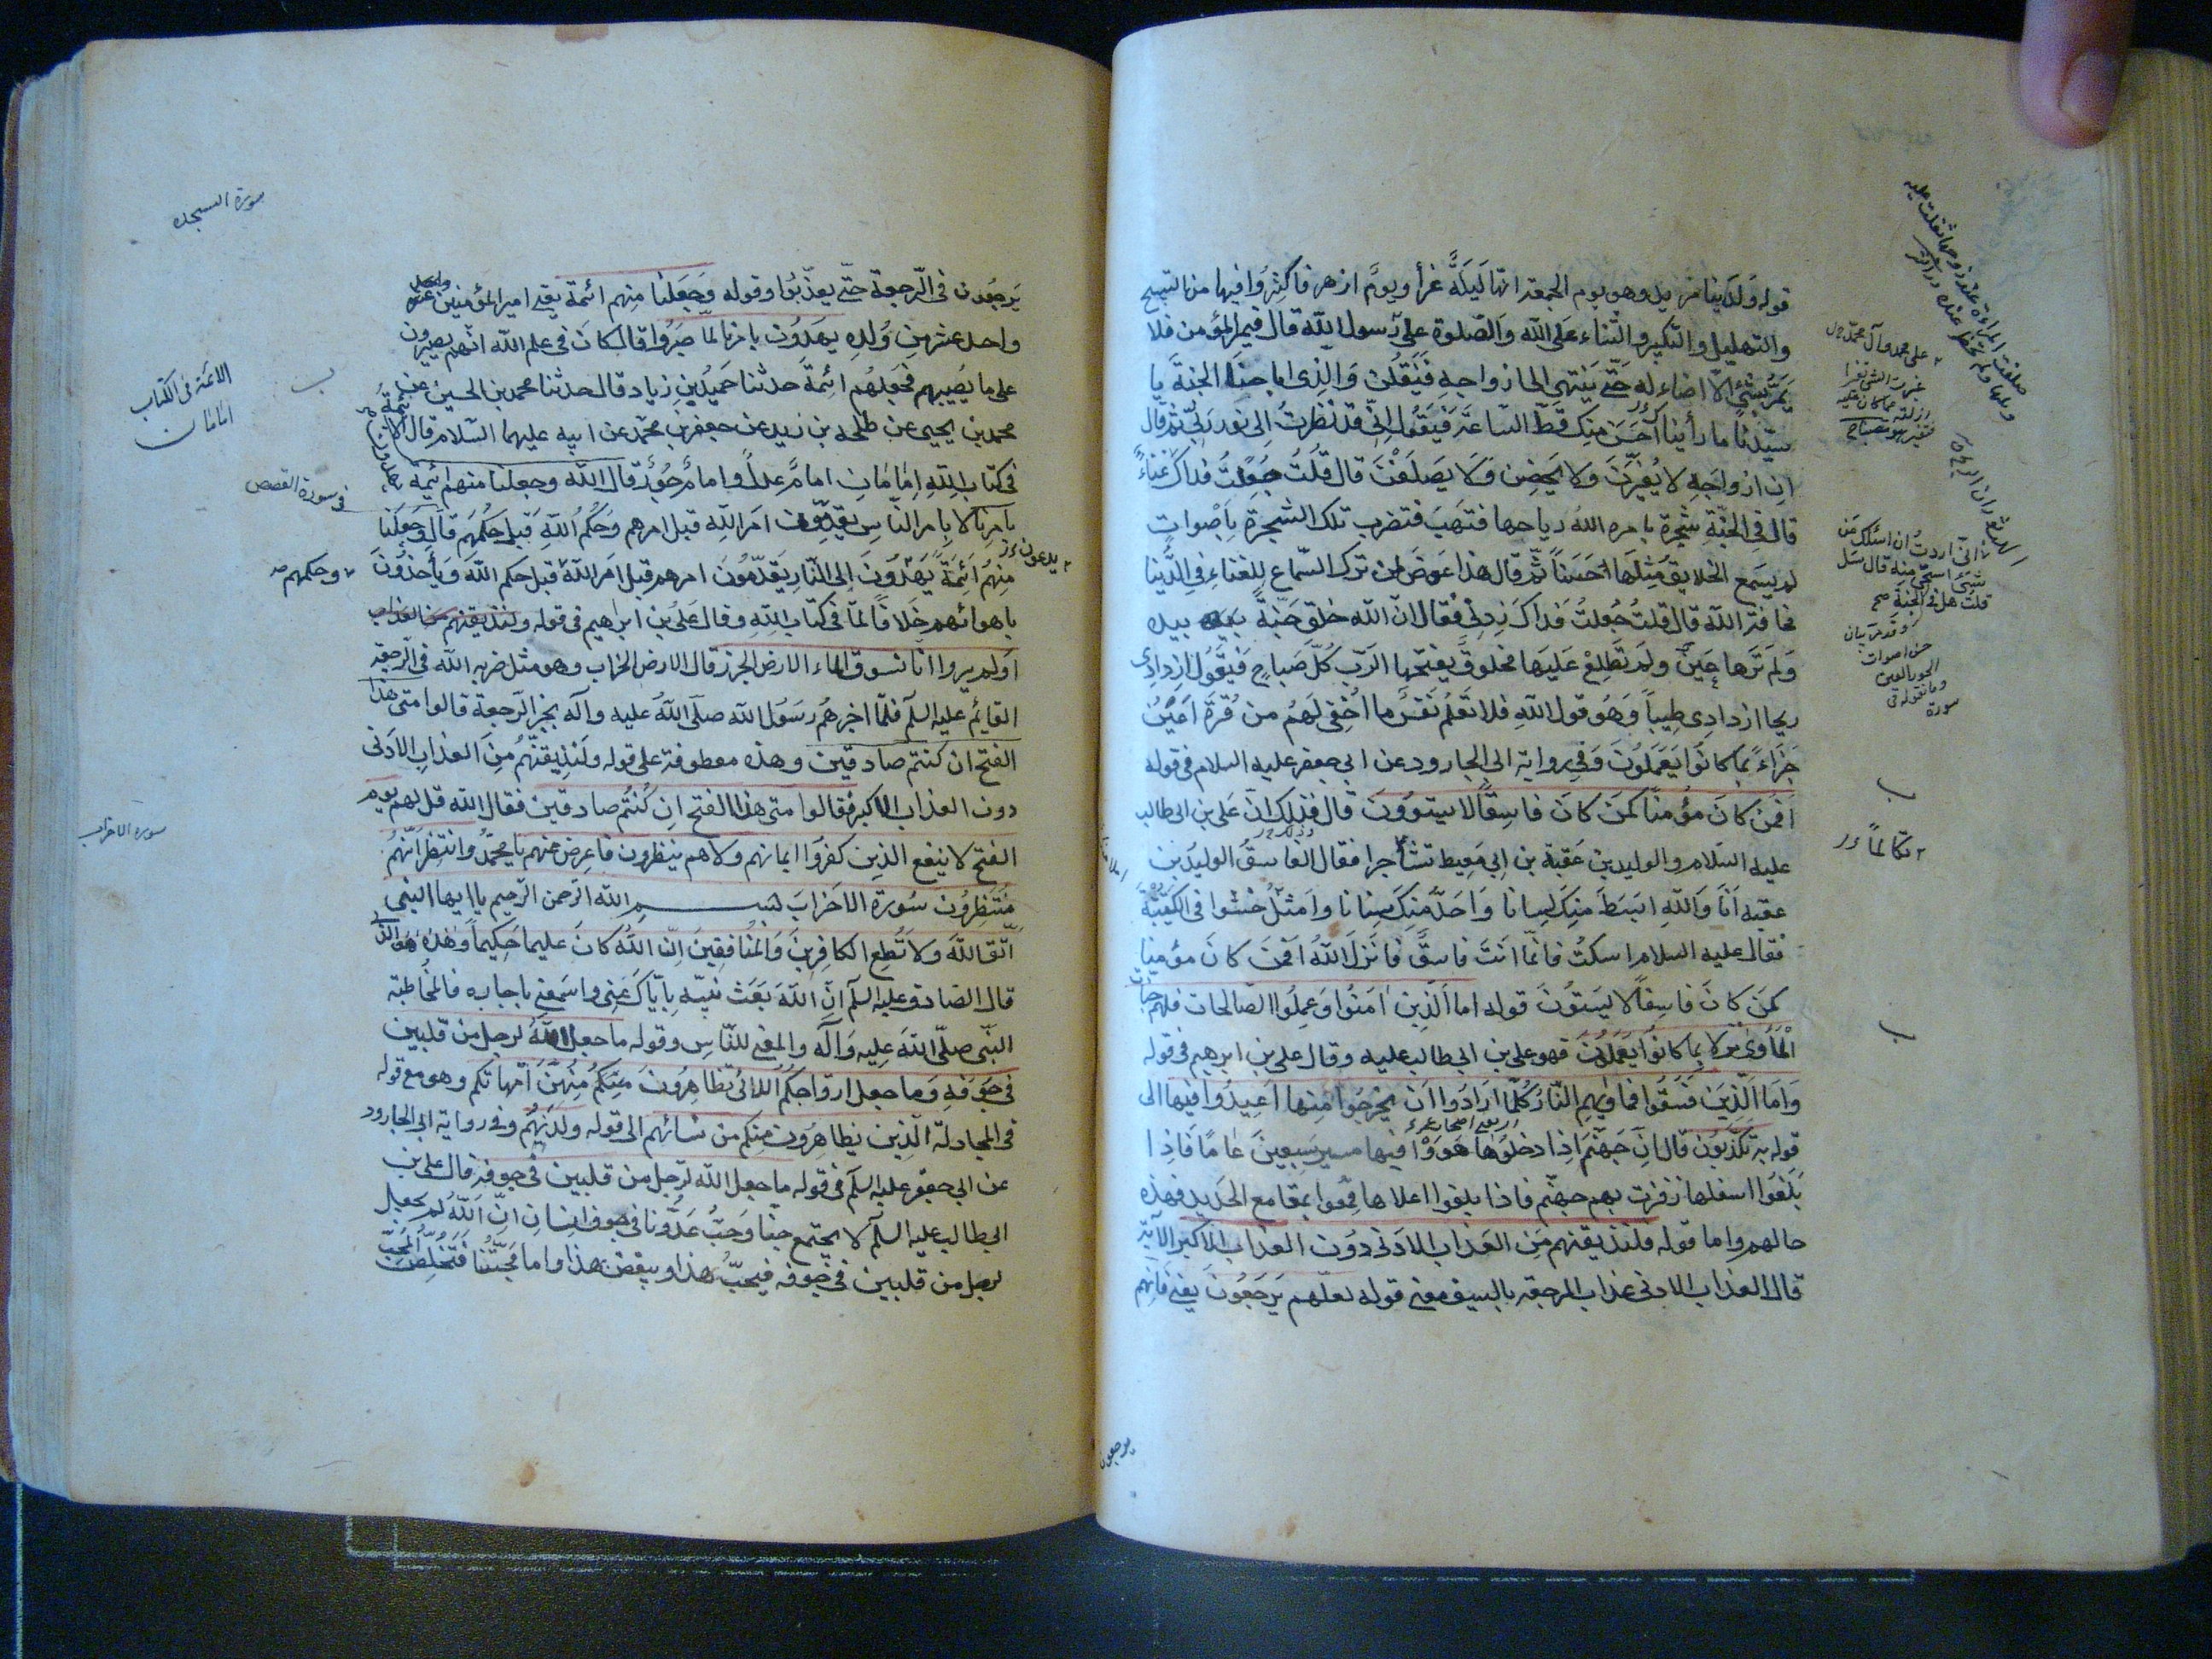 قوله ولدينا مزيد وهو يوم الجمعة انها ليلة غرا ويوم ازهر فاكثروا فيها من التسبيح
والتهليل والتكبير والثناء على الله والصلوة على رسول الله قال فيمر المؤمن فلا
يمر بشئ الا اضاء له حتى ينتهى الى ازواجه فيقلن والذى اباحنا الجنة يا
سيدنا ما رأينا احسن منك قط الساعة فيقول انى قد نظرت الى نور ربى ثم قال
ان ازواجه لا يغرن ولا يحضن ولا يصلفن قال قلت جعلت فداك غناء
قال فى الجنة شجرة يامره الله رياحها فتهب فتضرب تلك الشجرة باصوات
لم يسمع الخلايق مثلها احسنا ثم قال هذا عوض لمن ترك السماع للغناء فى الدنيا
مخافة الله قال قلت جعلت فداك زدنى فقال ان الله خلق جنة بيده
ولم ترها عين ولم تطلع عليها مخلوق يفتحها الرب كل صباح فيقول ازدادى
ريحا ازدادى طيبا وهو قول الله فلا تعلم نفس ما اخفى لهم من قرة اعين
جزاء بما كانوا يعملون وفى رواية ابى الجارود عن ابى جعفر عليه السلام فى قوله
افمن كان مؤمنا كمن كان فاسقا لا يستوون قال فذلك ان على بن ابى طالب
عليه السلام والوليد بن عقبة بن ابى معيط تشاجرا فقال الفاسق الوليد بن
عقبه انا والله ابسط منك لسانا واحد منك سنانا وامثل حشوا فى الكتيبة
فقال عليه السلام اسكت فانما انت فاسق فانزل الله افمن كان مؤمنا
كمن كان فاسقا لا يستون قوله اما الذين امنوا وعملوا الصالحات فلهم جنات
المأوى نزلا بما كانوا يعملون فهو على بن ابى طالب عليه وقال على بن ابرهيم فى قوله
واما الذين فسقوا فماويهم النار كلما ارادوا ان يخرجوا منها اعيدوا فيها الى
قوله به تكذبون قال ان جهنم اذا دخلوها هووا فيها مسير سبعين عاما فاذا
بلغوا اسفلها زفرت بهم جهنم فاذا بلغوا اعلاها قمعوا بمقامع الحديد فهذه
حالهم واما قوله فلنذيقنهم من العذاب الادنى دون العذاب الاكبر الآية
قال العذاب الادنى عذاب الرجعة بالسيف معنى قوله لعلهم يرجعون يعنى فانهم
يرجعون
على محمد وآل محمد
انى اردت ان اسئلك عن
شئ استحى منه قال سل
قلت هل فى الجنة
وقد مر بيان
حسن اصوات
الحور العين
سورة
يرجعون فى الرجعة حتى يعذبوا وقوله وجعلنا منهم ائمة يعنى امير المؤمنين
واحد عشر من ولده يهدون بامرنا لما صبروا قال كان فى علم الله انهم يصبرون
على ما يصيبهم فجعلهم ائمة حدثنا حميد بن زياد قال حدثنا محمد بن الحسين عن
محمد بن يحيى عن طلحه بن زيد عن جعفر بن محمد عن ابيه عليهما السلام قال الائمة
فى كتاب الله امامان امام عدل وامام جور قال الله وجعلنا منهم ائمة يهدون
بامرنا لا بامر الناس يقدمون امر الله قبل امرهم وحكم الله قبل حكمهم قال وجعلنا
منهم ائمة يهدون الى النار يقدمون امرهم قبل امر الله قبل حكم الله وياخذون
باهوائهم خلافا لما فى كتاب الله وقال على بن ابراهيم فى قوله ولنذيقنهم من العذاب
اولم يروا انا نسوق الماء الى الارض الجرز قال الارض الخراب وهو مثل ضربه الله فى الرجعة
القايم عليه السلم فلما اخبرهم رسول الله صلى الله عليه وآله بخبر الرجعة قالوا متى هذا
الفتح ان كنتم صادقين وهذه معطوفة على قوله ولنذيقنهم من العذاب الادنى
دون العذاب الاكبر فقالوا متى هذا الفتح ان كنتم صادقين فقال الله قل لهم يوم
الفتح لا ينفع الذين كفروا ايمانهم ولا هم ينظرون فاعرض عنهم يا محمد وانتظر انهم
منتظرون سورة الاحزاب بسم الله الرحمن الرحيم يا ايها النبى
اتق الله ولا تطع الكافرين والمنافقين ان الله كان عليما حكيما وهذا هو الذى
قال الصادق عليه السلم ان الله بعث نبيه باياك عنى واسمعى يا جاره فالمخاطبة
النبى صلى الله عليه وآله والمعنى للناس وقوله ما جعل الله لرجل من قلبين
فى جوفه وما جعل ازواجكم اللائى تظاهرون منكم منهن امهاتكم وهو مع قوله
فى المجادلة الذين يظاهرون منكم من نسائهم الى قوله ولدنهم وفى رواية ابى الجارود
عن ابى جعفر عليه السلم فى قوله ما جعل الله لرجل من قلبين فى جوفه قال على بن
ابى طالب عليه السلم لا يجتمع حبنا وحب عدونا فى جوف انسان ان الله لم يجعل
لرجل من قلبين فى جوفه فيحب هذا ويبغض هذا واما محبنا فتخلص المحب
سورة السجده
الائمة فى الكتاب
امامان
فى سورة القصص
يدعون
وحكمهم
سورة الاحزاب